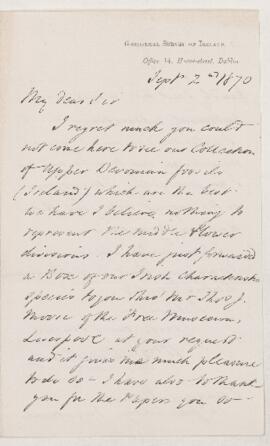 GEOLOGICAL SURVEY OF IRELAND
Office 14, Hume-street, Dublin
Sept 2nd 1870
My dear Sir
I regret much you could
not come here to see our Collection
of Upper Devonian fossils
(Ireland) which are the best
we have I believe, nothing to
represent the middle & lower
divisions. I have just forwarded
a Box of our Irish Characteristic
species to you thro' Mr Thos J.
Moore of the Free Museum,
Liverpool at your request
and it gives me much pleasure
to do so - I have also to thank
you for the Papers you so